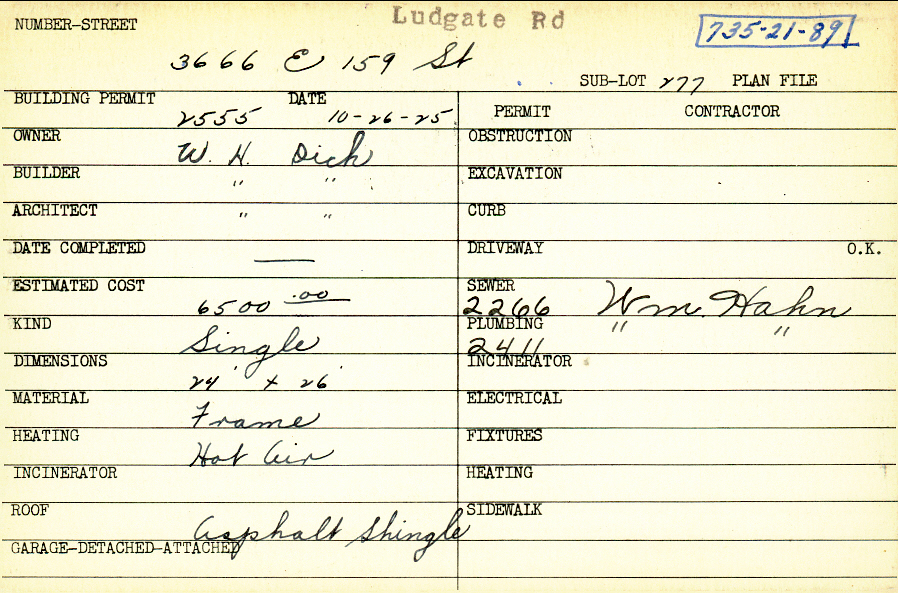 Ludgate Rd
NUMBER-STREET
735-21-89
3666 E 159 St
SUB-LOT 277 PLAN FILE
BUILDING PERMIT 2555 DATE 10-26-25
PERMIT CONTRACTOR
OWNER W. H. Dich
OBSTRUCTION
BUILDER " "
EXCAVATION
ARCHITECT " "
CURB
DATE COMPLETED —
DRIVEWAY O.K.
ESTIMATED COST 6500.00
SEWER 2266 Wm. Hahn
KIND Single
PLUMBING 2411 " "
DIMENSIONS 24' x 26'
INCINERATOR
MATERIAL Frame
ELECTRICAL
HEATING Hot Air
FIXTURES
INCINERATOR
HEATING
ROOF Asphalt Shingle
SIDEWALK
GARAGE-DETACHED-ATTACHED